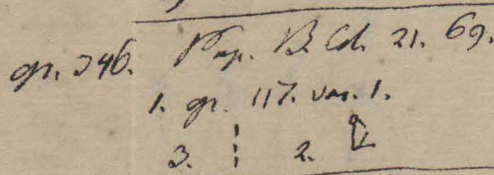 gr. 246. Pap. B. Cd. 21. 69.
1. gr. 117. var. 1.
3. 2.